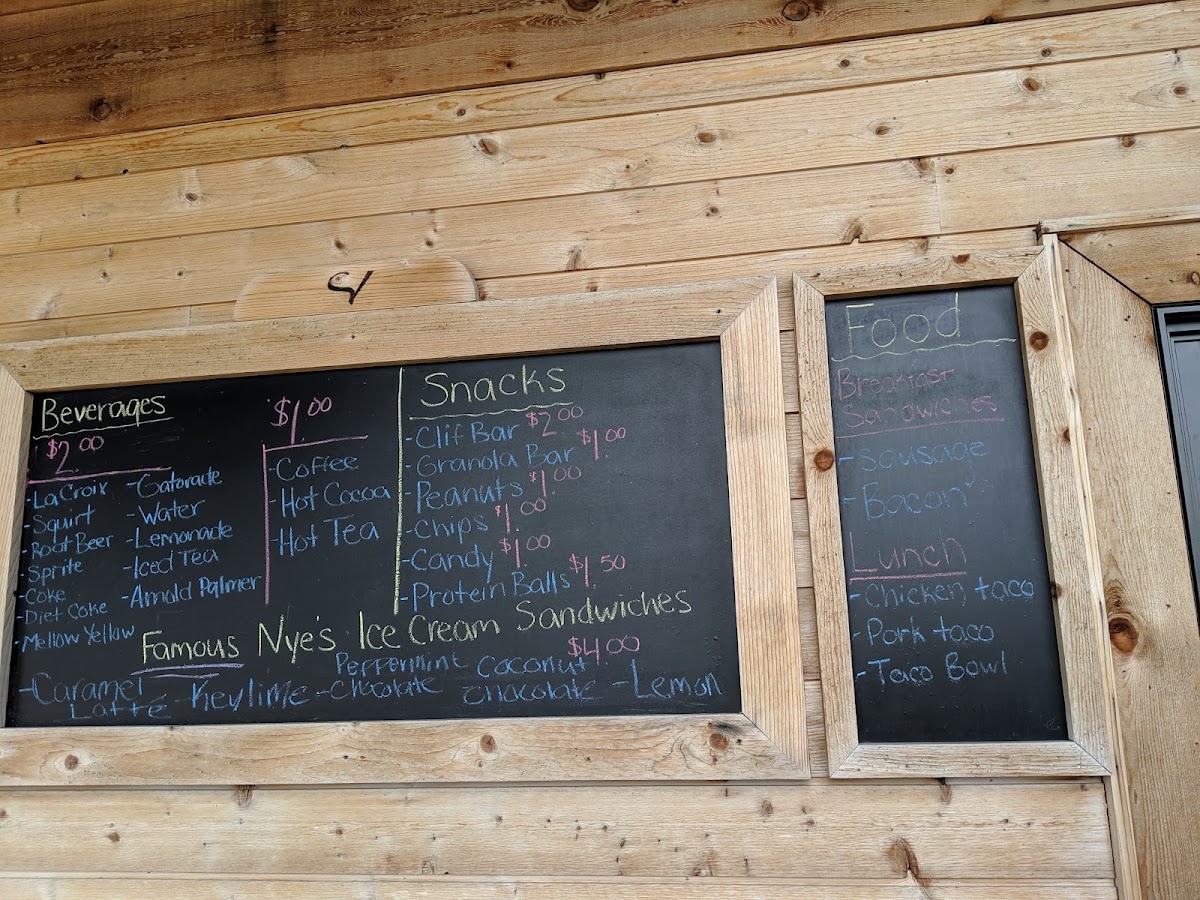 Beverages
$2.00
-La Croix
-Squirt
-Root Beer
-Sprite
-Coke
-Diet Coke
-Mellow Yellow
-Gatorade
-Water
-Lemonade
-Iced Tea
-Arnold Palmer
$1.00
-Coffee
-Hot Cocoa
-Hot Tea
Snacks
-Clif Bar $2.00
-Granola Bar $1.00
-Peanuts $1.00
-Chips $1.00
-Candy $1.00
-Protein Balls $1.50
Famous Nye's Ice Cream Sandwiches
$4.00
-Caramel
Latte
-Keylime
Peppermint
-Chocolate
Coconut
chocolate
-Lemon
Food
Breakfast
Sandwiches
-Sausage
-Bacon
Lunch
-Chicken taco
-Pork taco
-Taco Bowl